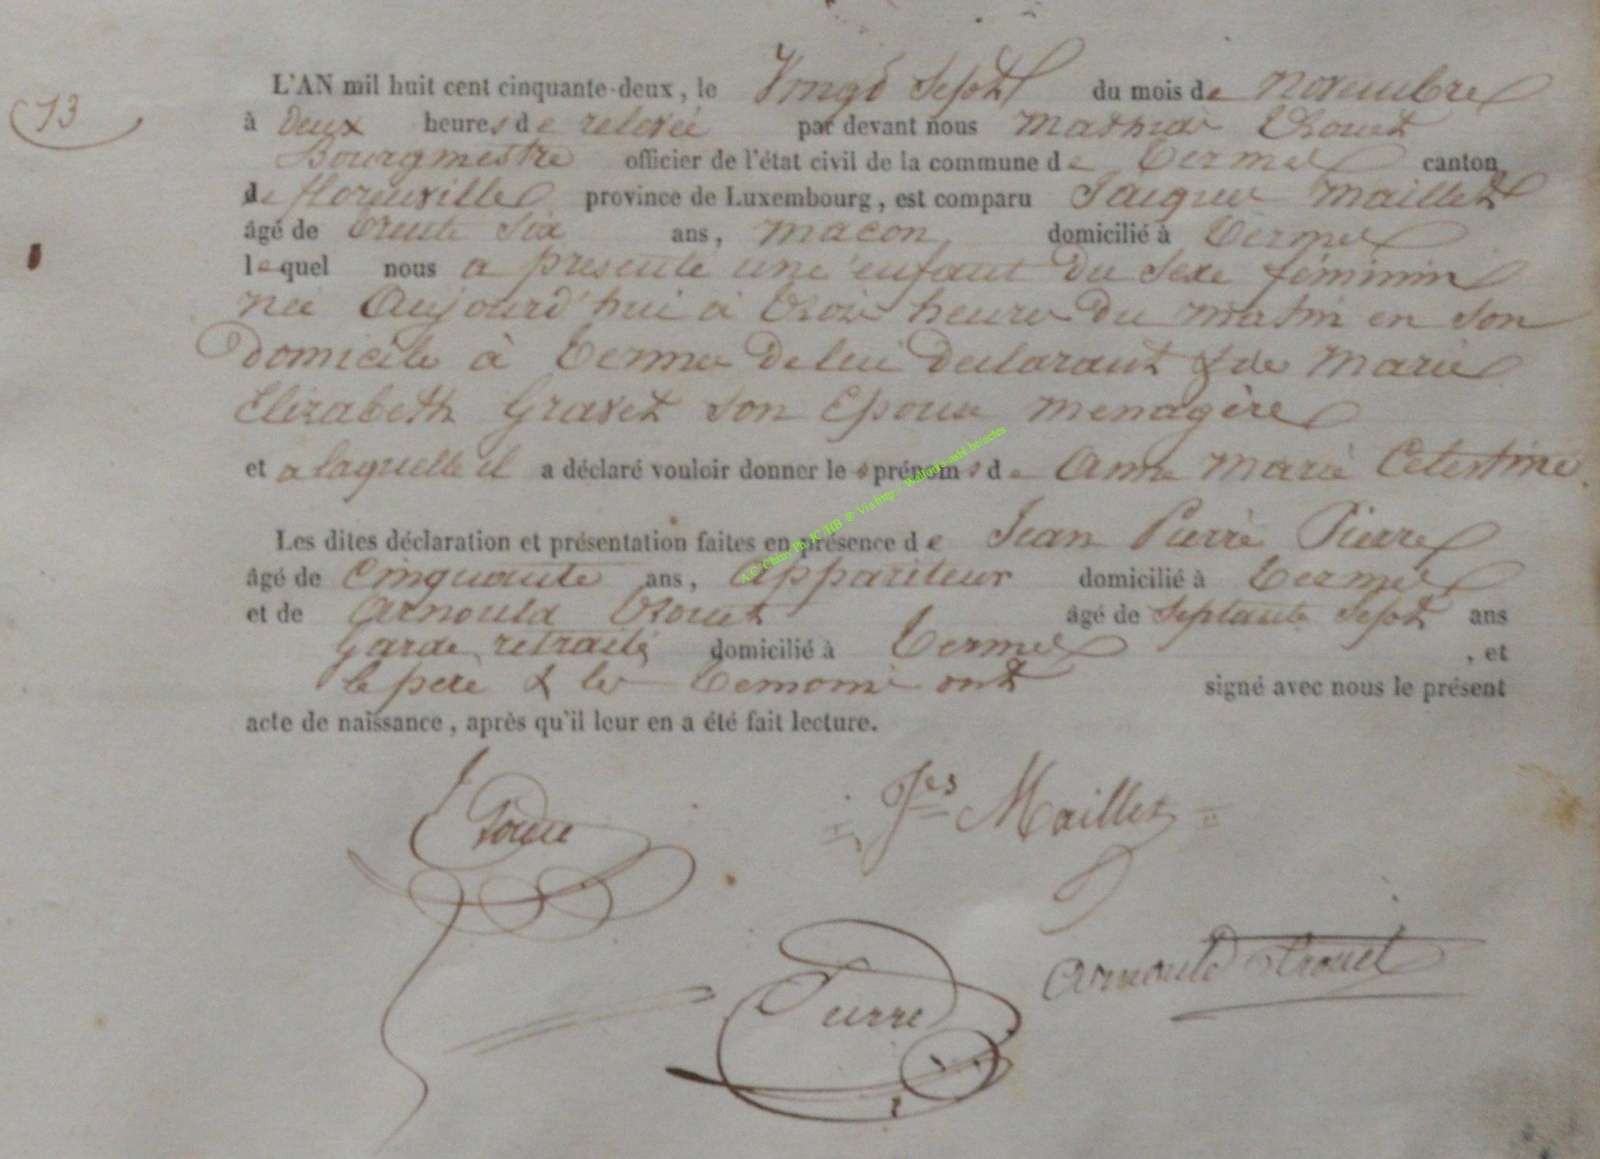 13
L'AN mil huit cent cinquante-deux, le Vingt Sept du mois de Novembre
à Deux heures de relevée par devant nous Mathias Trouet
Bourgmestre officier de l'état civil de la commune de Termes canton
de florenville province de Luxembourg, est comparu Jacques Maillet
âgé de trente Six ans, macon domicilié à Termes
lequel nous a presenté une enfant du sexe féminin
née Aujourd'hui à trois heures du matin en son
Domicile à Termes De lui Declarant & de Marie
Elizabeth Gravet son Epouse menagère
et a laquelle il a déclaré vouloir donner les prénoms de Anne Marie Celestine
Les dites déclaration et présentation faites en présence de Jean Pierre Pierre
âgé de Cinquante ans, Appariteur domicilié à Termes
et de Arnould Trouet âgé de Septante Sept ans
Garde retraité domicilié à Termes, et
le père & les temoins ont signé avec nous le présent
acte de naissance, après qu'il leur en a été fait lecture.
Jes Maillet
Trouet
Arnould trouet
Pierre